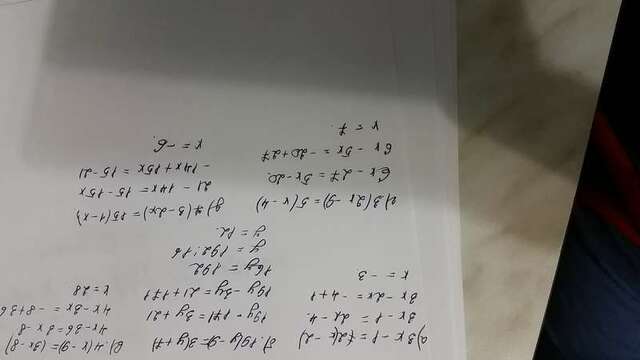 а) 3x - 1 = 2(x - 2)
3x - 1 = 2x - 4.
3x - 2x = -4 + 1
x = -3
б) 19(y - 9) = 3(y + 7)
19y - 171 = 3y + 21
19y - 3y = 21 + 171
16y = 192
y = 192 : 16
y = 12.
в) 4(x - 9) = (3x - 8)
4x - 36 = 3x - 8
4x - 3x = -8 + 36
x = 28
г) 3(2x - 9) = 5(x - 4)
6x - 27 = 5x - 20.
6x - 5x = -20 + 27
x = 7.
д) 7(3 - 2x) = 15(1 - x)
21 - 14x = 15 - 15x
-14x + 15x = 15 - 21
x = -6.